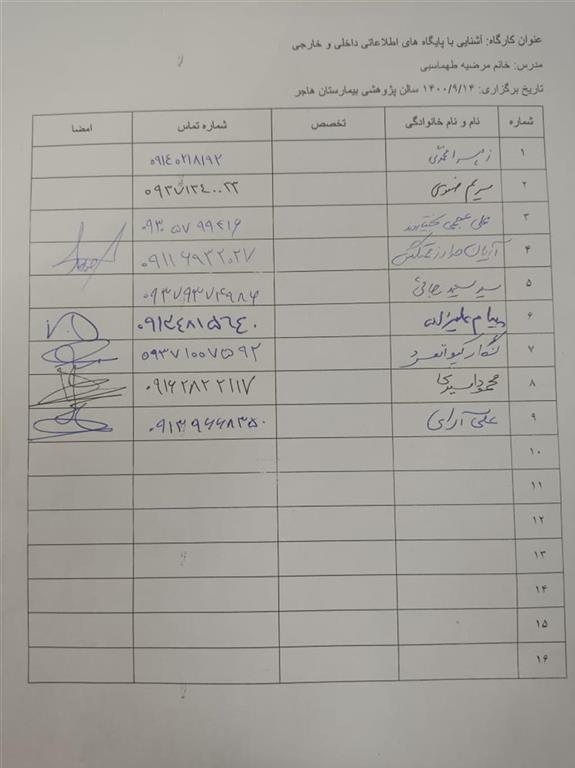 عنوان کارگاه: آشنایی با پایگاه های اطلاعاتی داخلی و خارجی
مدرس: خانم مرضیه طهماسبی
تاریخ برگزاری: ۱۴۰۰/۹/۱۴ سالن پژوهشی بیمارستان هاجر
شماره نام و نام خانوادگی تخصص شماره تماس امضا
۱ زهرا محمدی ۰۹۱۴۰۲۱۸۱۹۲
۲ مریم رضوی ۰۹۳۷۱۳۴۰۰۲۲
۳ علی ۰۹۳۰۵۷۹۹۴۱۶
۴ آریان ۰۹۱۱۶۹۳۲۰۲۷
۵ سید سعید رجائی ۰۹۳۷۹۳۷۴۹۸۶
۶ پیام علیزاده ۰۹۱۲۴۸۱۵۶۴۰
۷ نگار ۰۹۳۷۱۰۰۷۵۹۲
۸ محمود ۰۹۱۶۲۸۲۲۱۱۷
۹ علی آرای ۰۹۱۳۹۶۶۸۳۵۰
۱۰
۱۱
۱۲
۱۳
۱۴
۱۵
۱۶